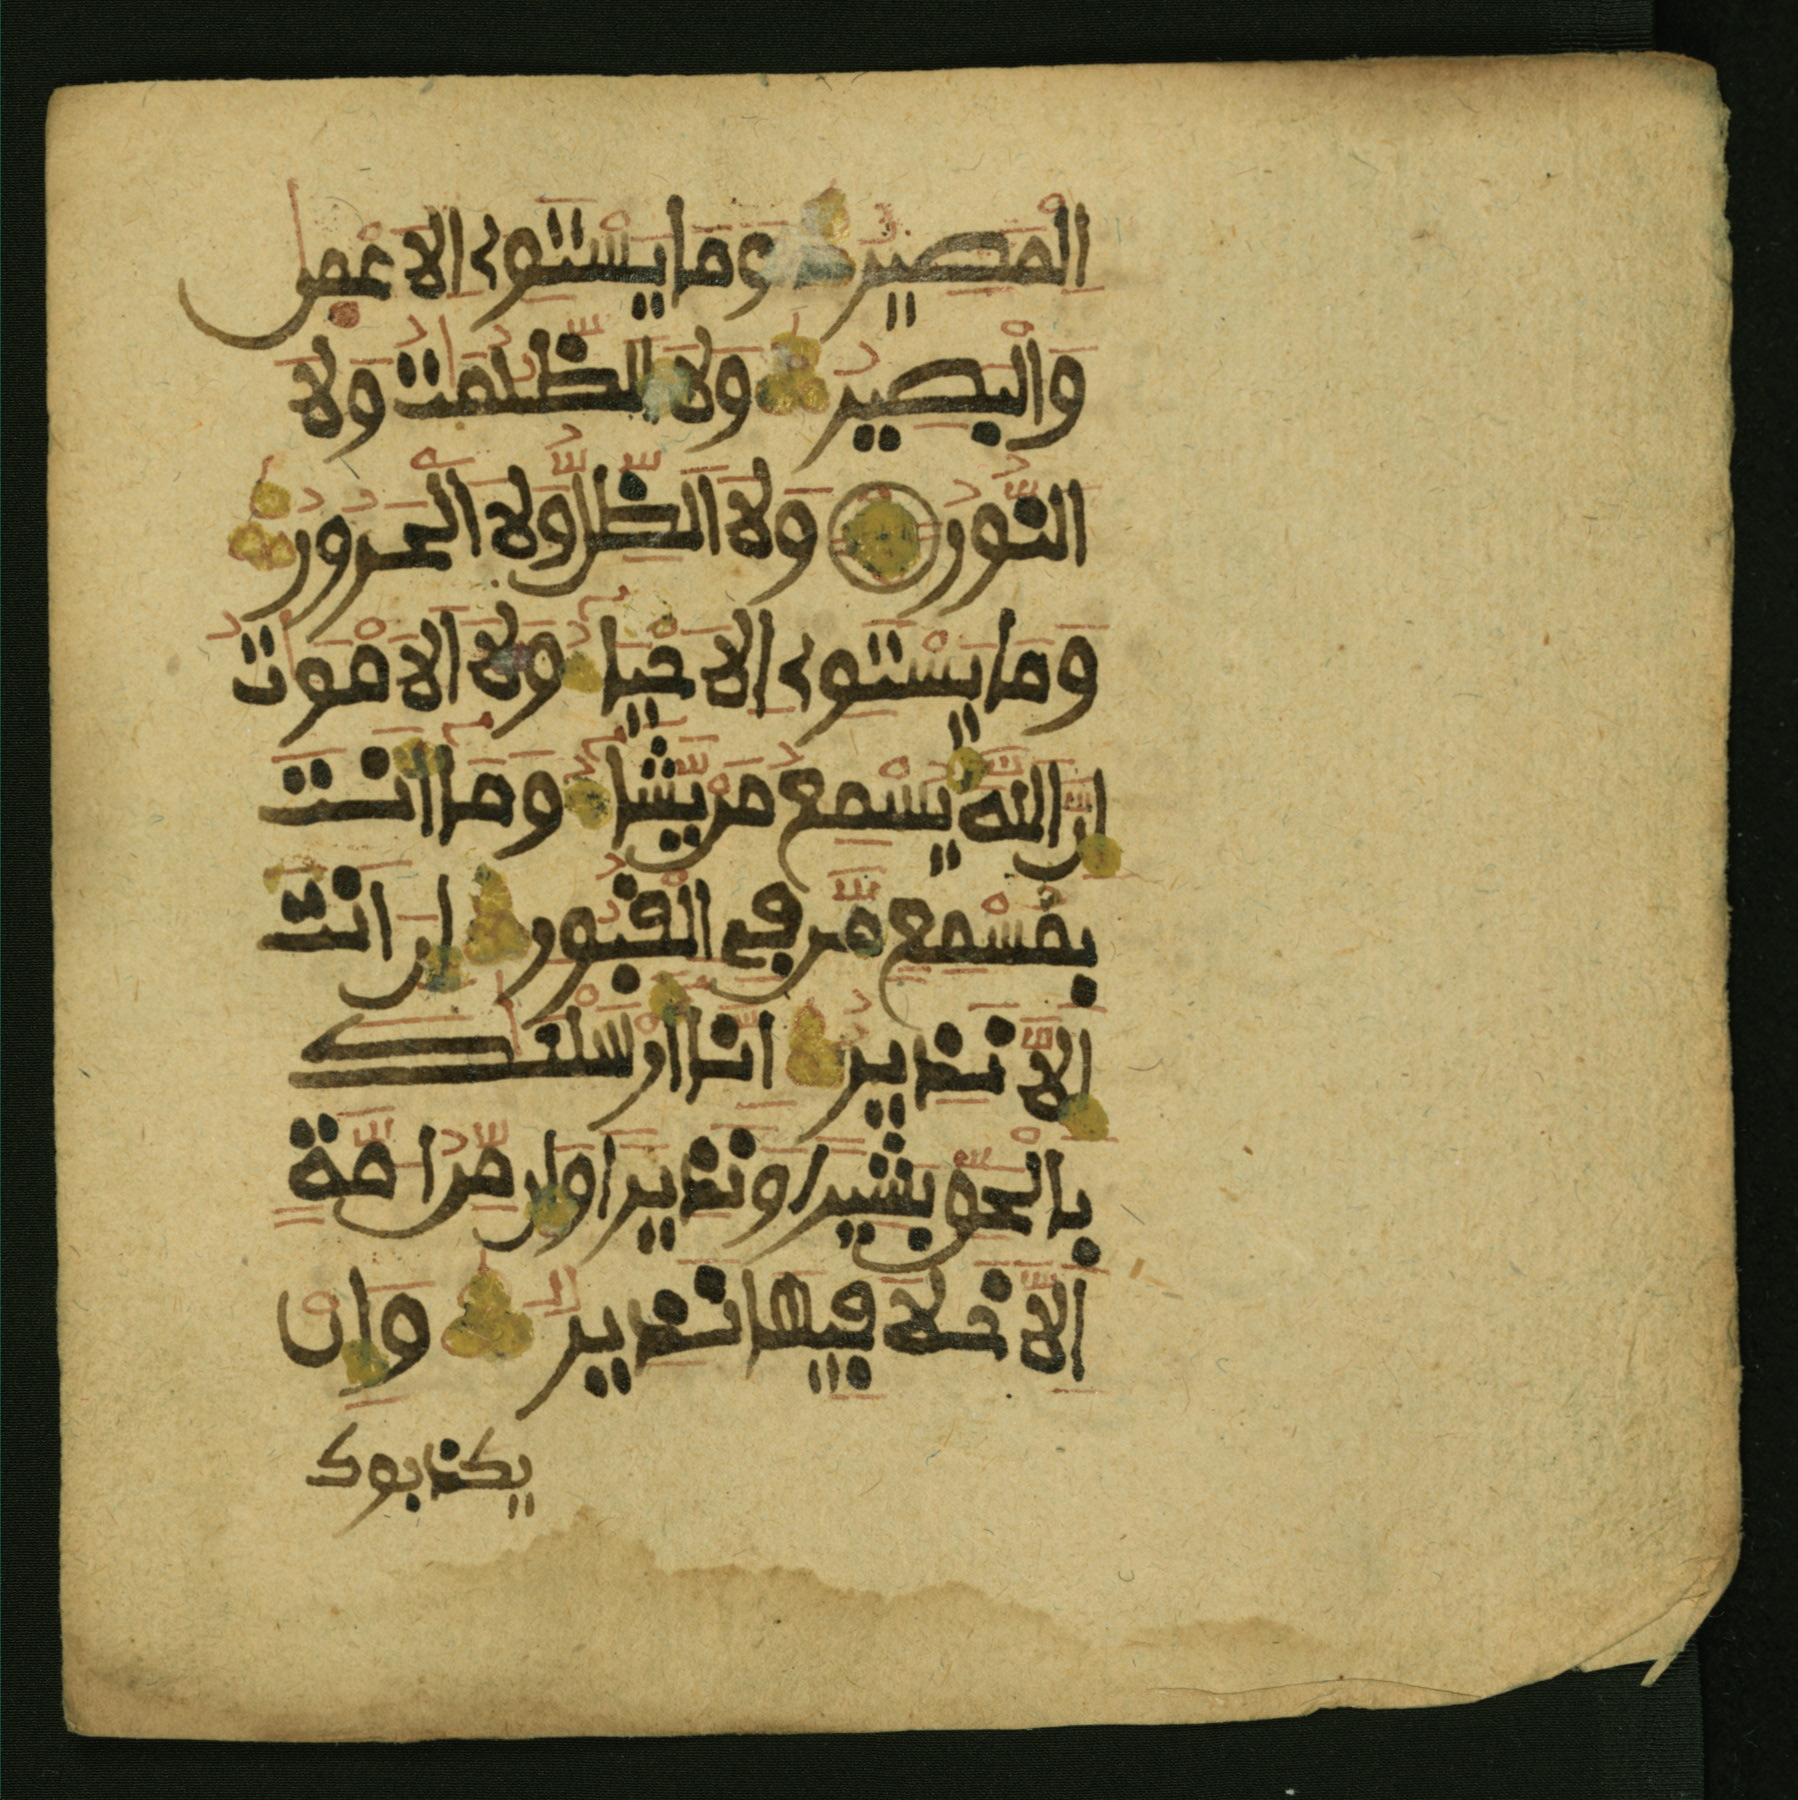 المصير وما يستوى الاعمى
والبصير ولا الظلمت ولا
النور ولا الظل ولا الحرور
وما يستوى الاحيا ولا الاموت
ان الله يسمع من يشا وما انت
بمسمع من في القبور ان انت
الا نذير انا ارسلنك
بالحق بشيرا ونذيرا وان من امة
الا خلا فيها نذير وان
يكذبوك